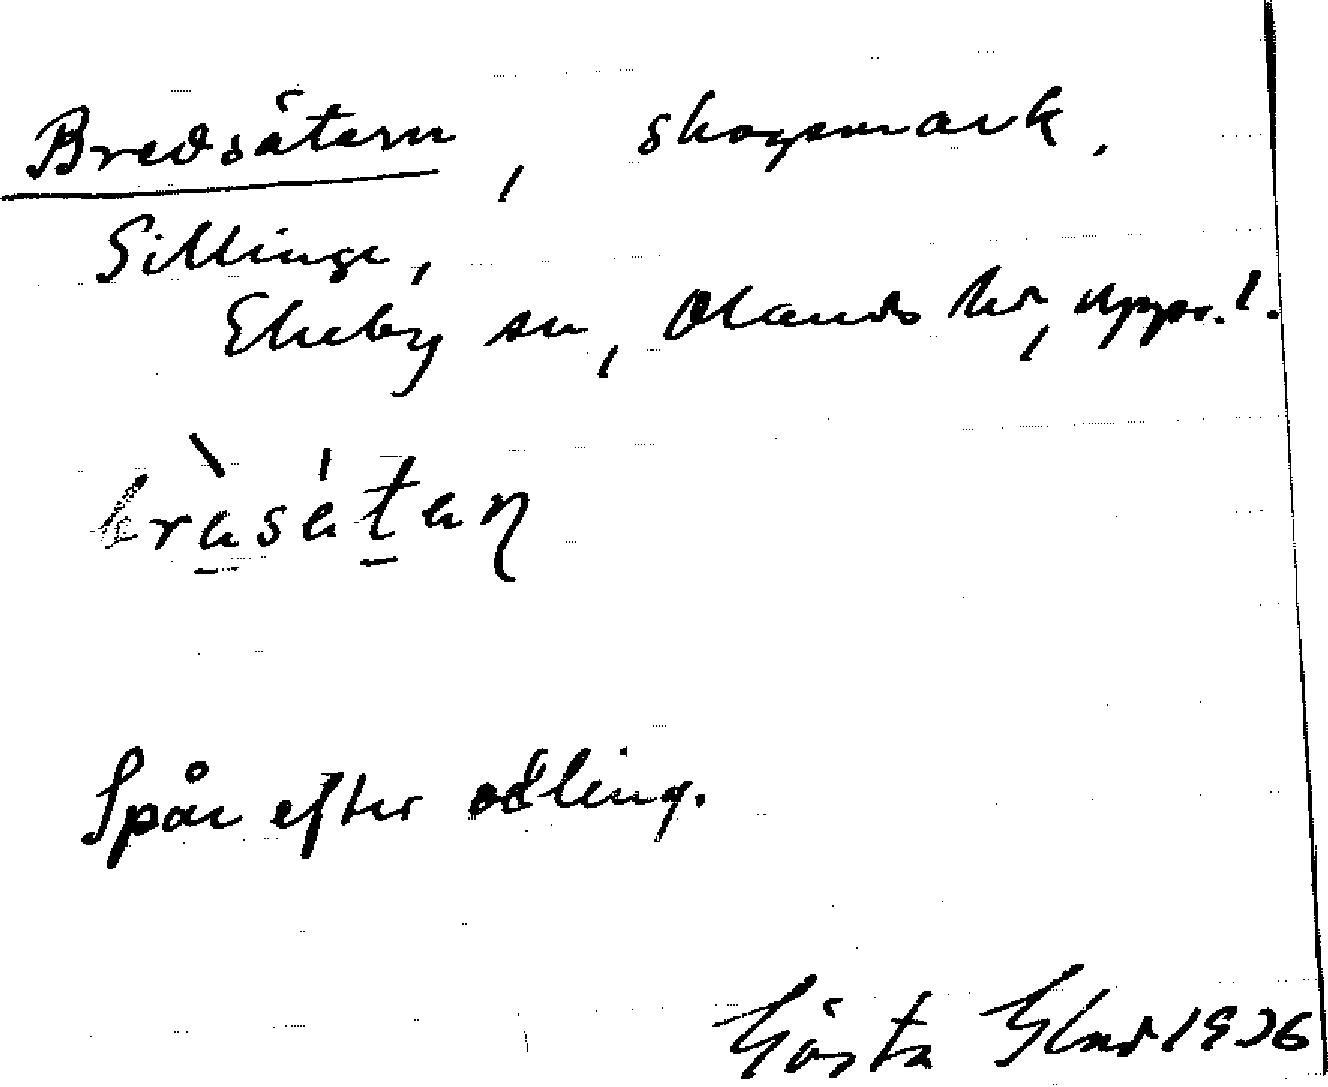 Bredsätern, skogsmark.
Sillinge,
Ekeby sn, Olands hd, Upps. l.
Spår efter odling.
Gösta 1936